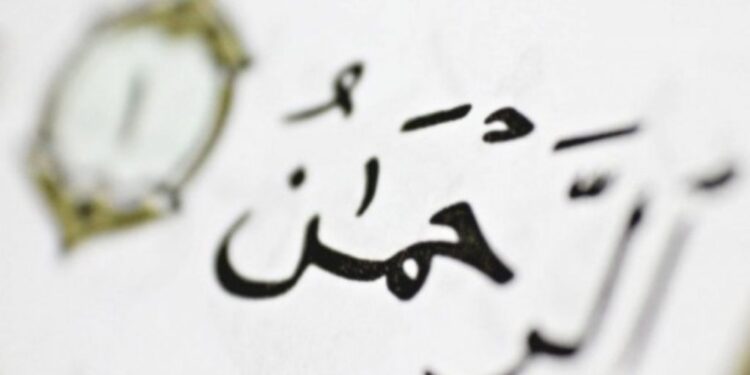 ٱلرَّحۡمَٰنُ ١